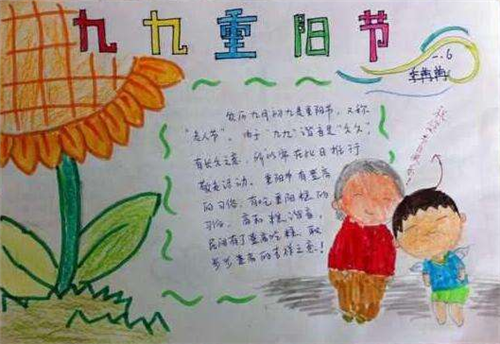 九九重阳节
一.6
农历九月初九是重阳节，又称
"老人节"。由于"九九"谐音是"久久"，
有长久之意，所以常在此日推行
敬老活动。重阳节有登高
的习俗，有吃重阳糕的
习俗。高和糕谐音，
民间有了登高吃糕，取
步步登高的吉祥之意！